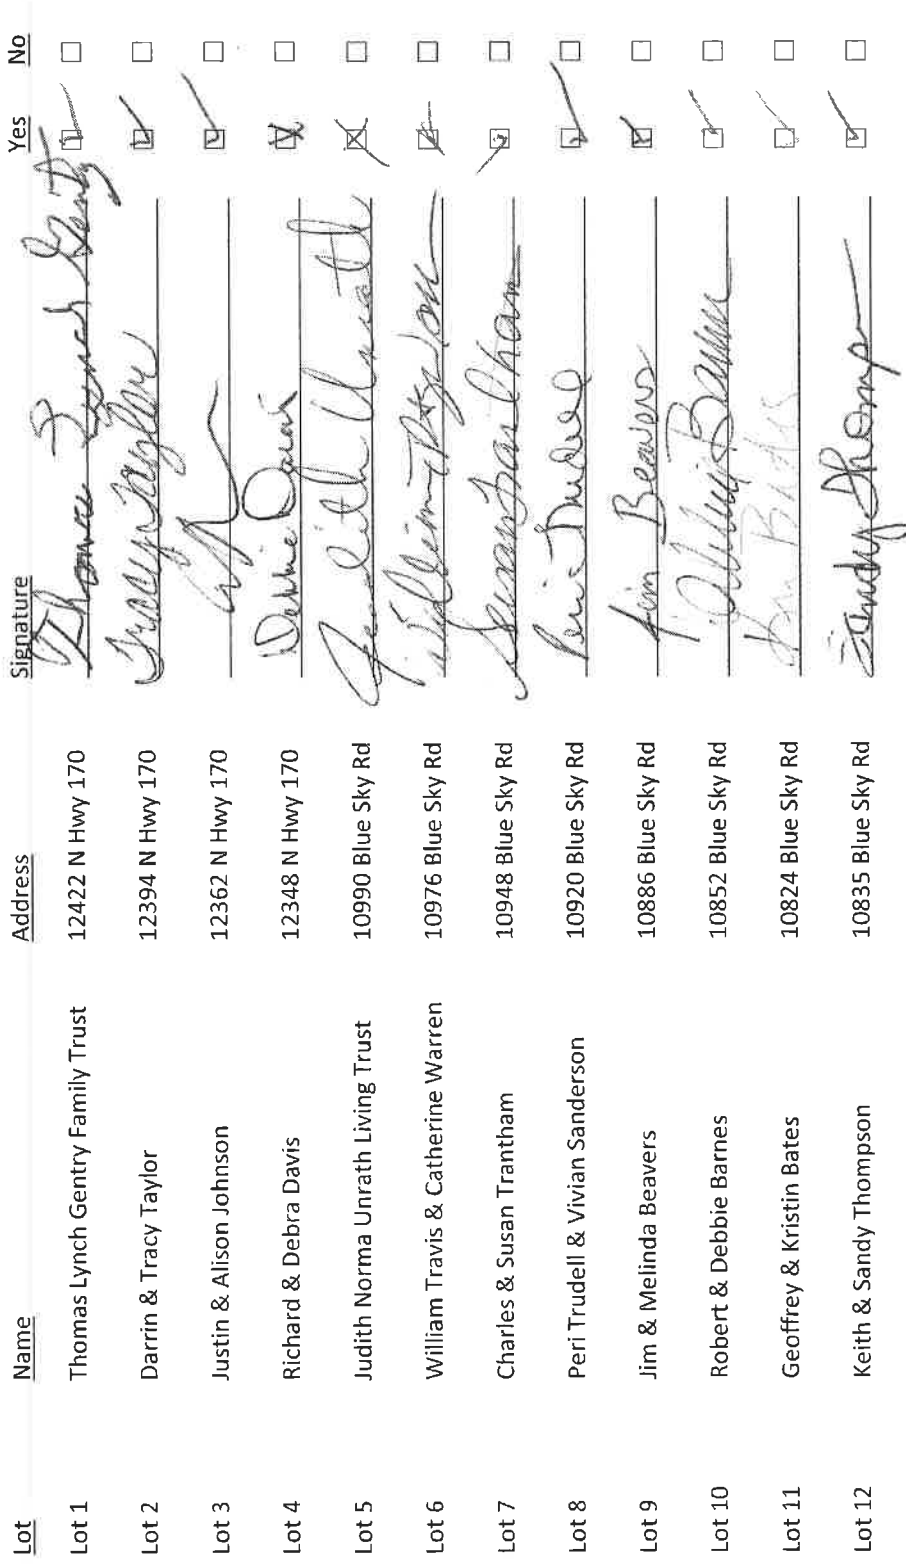 Lot Name Address Signature Yes No
Lot 1 Thomas Lynch Gentry Family Trust 12422 N Hwy 170 Thomas Lynch Gentry
Lot 2 Darrin & Tracy Taylor 12394 N Hwy 170 Tracy Taylor
Lot 3 Justin & Alison Johnson 12362 N Hwy 170
Lot 4 Richard & Debra Davis 12348 N Hwy 170 Debbie Davis
Lot 5 Judith Norma Unrath Living Trust 10990 Blue Sky Rd Judith Unrath
Lot 6 William Travis & Catherine Warren 10976 Blue Sky Rd William
Lot 7 Charles & Susan Trantham 10948 Blue Sky Rd Susan Trantham
Lot 8 Peri Trudell & Vivian Sanderson 10920 Blue Sky Rd Peri Trudell
Lot 9 Jim & Melinda Beavers 10886 Blue Sky Rd Jim Beavers
Lot 10 Robert & Debbie Barnes 10852 Blue Sky Rd Debbie Barnes
Lot 11 Geoffrey & Kristin Bates 10824 Blue Sky Rd Bates
Lot 12 Keith & Sandy Thompson 10835 Blue Sky Rd Sandy Thomp